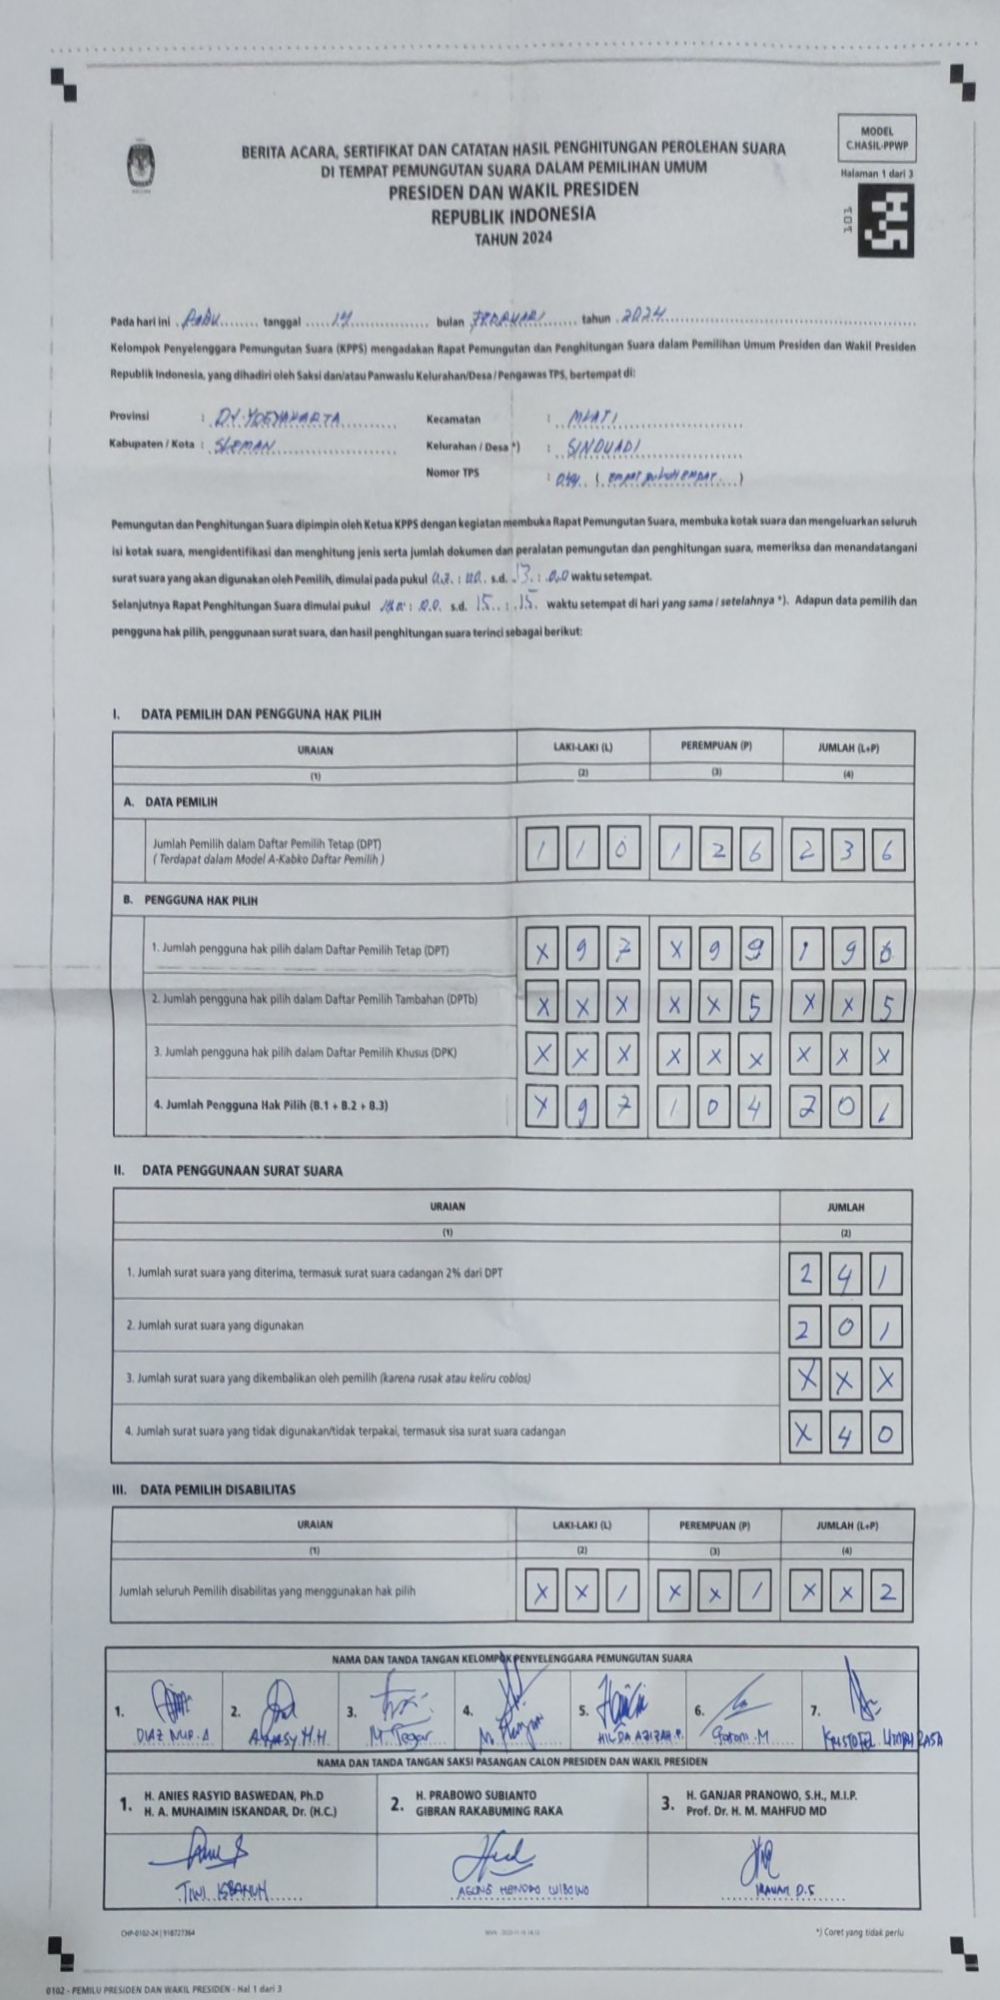 MODEL
C.HASIL-PPWP
Halaman 1 dari 3
101
BERITA ACARA, SERTIFIKAT DAN CATATAN HASIL PENGHITUNGAN PEROLEHAN SUARA
DI TEMPAT PEMUNGUTAN SUARA DALAM PEMILIHAN UMUM
PRESIDEN DAN WAKIL PRESIDEN
REPUBLIK INDONESIA
TAHUN 2024
Pada hari ini RABU tanggal 14 bulan FEBRUARI tahun 2024
Kelompok Penyelenggara Pemungutan Suara (KPPS) mengadakan Rapat Pemungutan dan Penghitungan Suara dalam Pemilihan Umum Presiden dan Wakil Presiden
Republik Indonesia, yang dihadiri oleh Saksi dan/atau Panwaslu Kelurahan/Desa / Pengawas TPS, bertempat di:
Provinsi : DI. YOGYAKARTA Kecamatan : MLATI
Kabupaten / Kota : SLEMAN Kelurahan / Desa *) : SINDUADI
Nomor TPS : 044 ( EMPAT PULUH EMPAT )
Pemungutan dan Penghitungan Suara dipimpin oleh Ketua KPPS dengan kegiatan membuka Rapat Pemungutan Suara, membuka kotak suara dan mengeluarkan seluruh
isi kotak suara, mengidentifikasi dan menghitung jenis serta jumlah dokumen dan peralatan pemungutan dan penghitungan suara, memeriksa dan menandatangani
surat suara yang akan digunakan oleh Pemilih, dimulai pada pukul 07 : 00 s.d. 13 : 00 waktu setempat.
Selanjutnya Rapat Penghitungan Suara dimulai pukul : 00 s.d. 15 : 15 waktu setempat di hari yang sama / setelahnya *). Adapun data pemilih dan
pengguna hak pilih, penggunaan surat suara, dan hasil penghitungan suara terinci sebagai berikut:
I. DATA PEMILIH DAN PENGGUNA HAK PILIH
URAIAN LAKI-LAKI (L) PEREMPUAN (P) JUMLAH (L+P)
(1) (2) (3) (4)
A. DATA PEMILIH
Jumlah Pemilih dalam Daftar Pemilih Tetap (DPT) 1 1 0 1 2 6 2 3 6
( Terdapat dalam Model A-Kabko Daftar Pemilih )
B. PENGGUNA HAK PILIH
1. Jumlah pengguna hak pilih dalam Daftar Pemilih Tetap (DPT) X 9 7 X 9 9 1 9 6
2. Jumlah pengguna hak pilih dalam Daftar Pemilih Tambahan (DPTb) X X X X X 5 X X 5
3. Jumlah pengguna hak pilih dalam Daftar Pemilih Khusus (DPK) X X X X X X X X X
4. Jumlah Pengguna Hak Pilih (B.1 + B.2 + B.3) X 9 7 1 0 4 2 0 1
II. DATA PENGGUNAAN SURAT SUARA
URAIAN JUMLAH
(1) (2)
1. Jumlah surat suara yang diterima, termasuk surat suara cadangan 2% dari DPT 2 4 1
2. Jumlah surat suara yang digunakan 2 0 1
3. Jumlah surat suara yang dikembalikan oleh pemilih (karena rusak atau keliru coblos) X X X
4. Jumlah surat suara yang tidak digunakan/tidak terpakai, termasuk sisa surat suara cadangan X 4 0
III. DATA PEMILIH DISABILITAS
URAIAN LAKI-LAKI (L) PEREMPUAN (P) JUMLAH (L+P)
(1) (2) (3) (4)
Jumlah seluruh Pemilih disabilitas yang menggunakan hak pilih X X 1 X X 1 X X 2
NAMA DAN TANDA TANGAN KELOMPOK PENYELENGGARA PEMUNGUTAN SUARA
1. 2. 3. 4. 5. 6. 7.
DIAZ NUR. A M. Tegar HILDA AZIZAH
NAMA DAN TANDA TANGAN SAKSI PASANGAN CALON PRESIDEN DAN WAKIL PRESIDEN
1. H. ANIES RASYID BASWEDAN, Ph.D
H. A. MUHAIMIN ISKANDAR, Dr. (H.C.)
2. H. PRABOWO SUBIANTO
GIBRAN RAKABUMING RAKA
3. H. GANJAR PRANOWO, S.H., M.I.P.
Prof. Dr. H. M. MAHFUD MD
AGUNG HENDRO WIBOWO
CHP-0102-24 | 918727364
*) Coret yang tidak perlu
0102 - PEMILU PRESIDEN DAN WAKIL PRESIDEN - Hal 1 dari 3